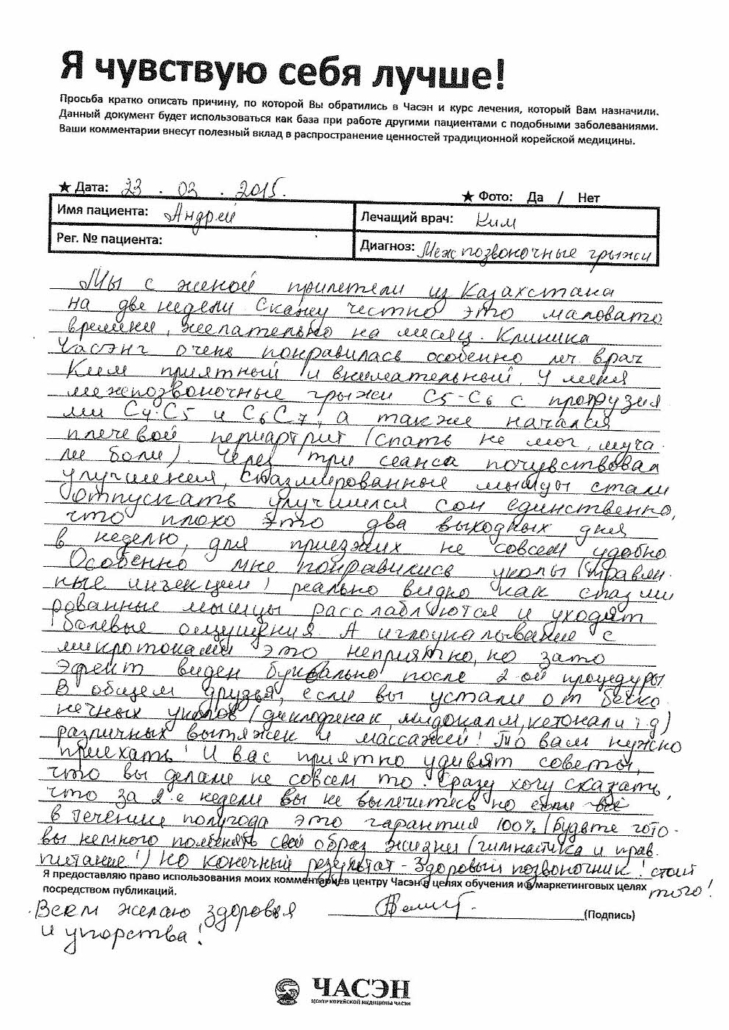 Я чувствую себя лучше!
Просьба кратко описать причину, по которой Вы обратились в Часэн и курс лечения, который Вам назначили.
Данный документ будет использоваться как база при работе другими пациентами с подобными заболеваниями.
Ваши комментарии внесут полезный вклад в распространение ценностей традиционной корейской медицины.
★ Дата: 23 . 03 . 2015. ★ Фото: Да / Нет
Имя пациента: Андрей Лечащий врач: Ким
Рег. № пациента: Диагноз: Межпозвоночные грыжи
Мы с женой прилетели из Казахстана
на две недели Скажу честно это маловато
времени, желательно на месяц. Клиника
Часэнг очень понравилась особенно леч. врач
Ким приятный и внимательный. У меня
межпозвоночные грыжи С5-С6 с протрузия
ми С4-С5 и С6С7, а также начался
плечевой периартрит (спать не мог, муча
ли боли). Через три сеанса почувствовал
улучшения, спазмированные мышцы стали
отпускать улучшился сон единственно,
что плохо это два выходных дня
в неделю, для приезжих не совсем удобно
Особенно мне понравились уколы (травян-
ные инъекции) реально видно как спазми
рованные мышцы расслабляются и уходят
болевые ощущения А иглоукалывание с
микротоками это неприятно, но зато
эфект виден буквально после 2-ой процедуры
В общем друзья, если вы устали от беско
нечных уколов (диклофенак, мидокалм, кетонал и т д)
различных вытяжек и массажей! То вам нужно
приехать! И вас приятно удивят советы,
что вы делали не совсем то. Сразу хочу сказать,
что за 2-е недели вы не вылечитесь но если все
в течении полугода это гарантия 100% (будьте гото-
вы немного поменять свой образ жизни (гимнастика и прав.
питание!) но конечный результат - Здоровый позвоночник! стоит
того!
Я предоставляю право использования моих комментариев центру Часэн в целях обучения и в маркетинговых целях
посредством публикаций.
Всем желаю здоровья (Подпись)
и упорства!
ЧАСЭН
ЦЕНТР КОРЕЙСКОЙ МЕДИЦИНЫ ЧАСЭН